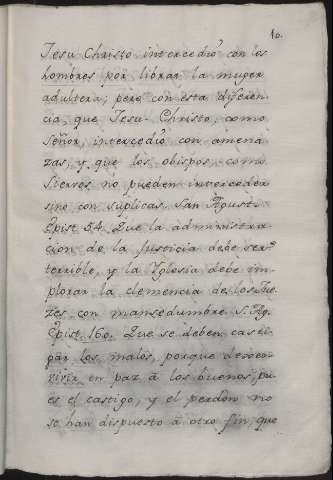 10.
Jesu Christo intercedió con los
hombres por librar la muger
adultera; pero con esta diferen
cia, que Jesu-Christo, como
Señor, intercedió con amena
zas, y que los obispos, como
siervos no pueden interceder
sino con suplicas. San Agusti
Epist. 54. Que la administra
cion de la Justicia debe ser
terrible, y la Yglesia debe im
plorar la clemencia de los Jue
zes con mansedumbre. S. Ag.
Epist. 160. Que se deben casti
gar los malos, porque dexen
vivir en paz á los buenos, pu
es el castigo, y el perdon no
se han dispuesto á otro fin, que